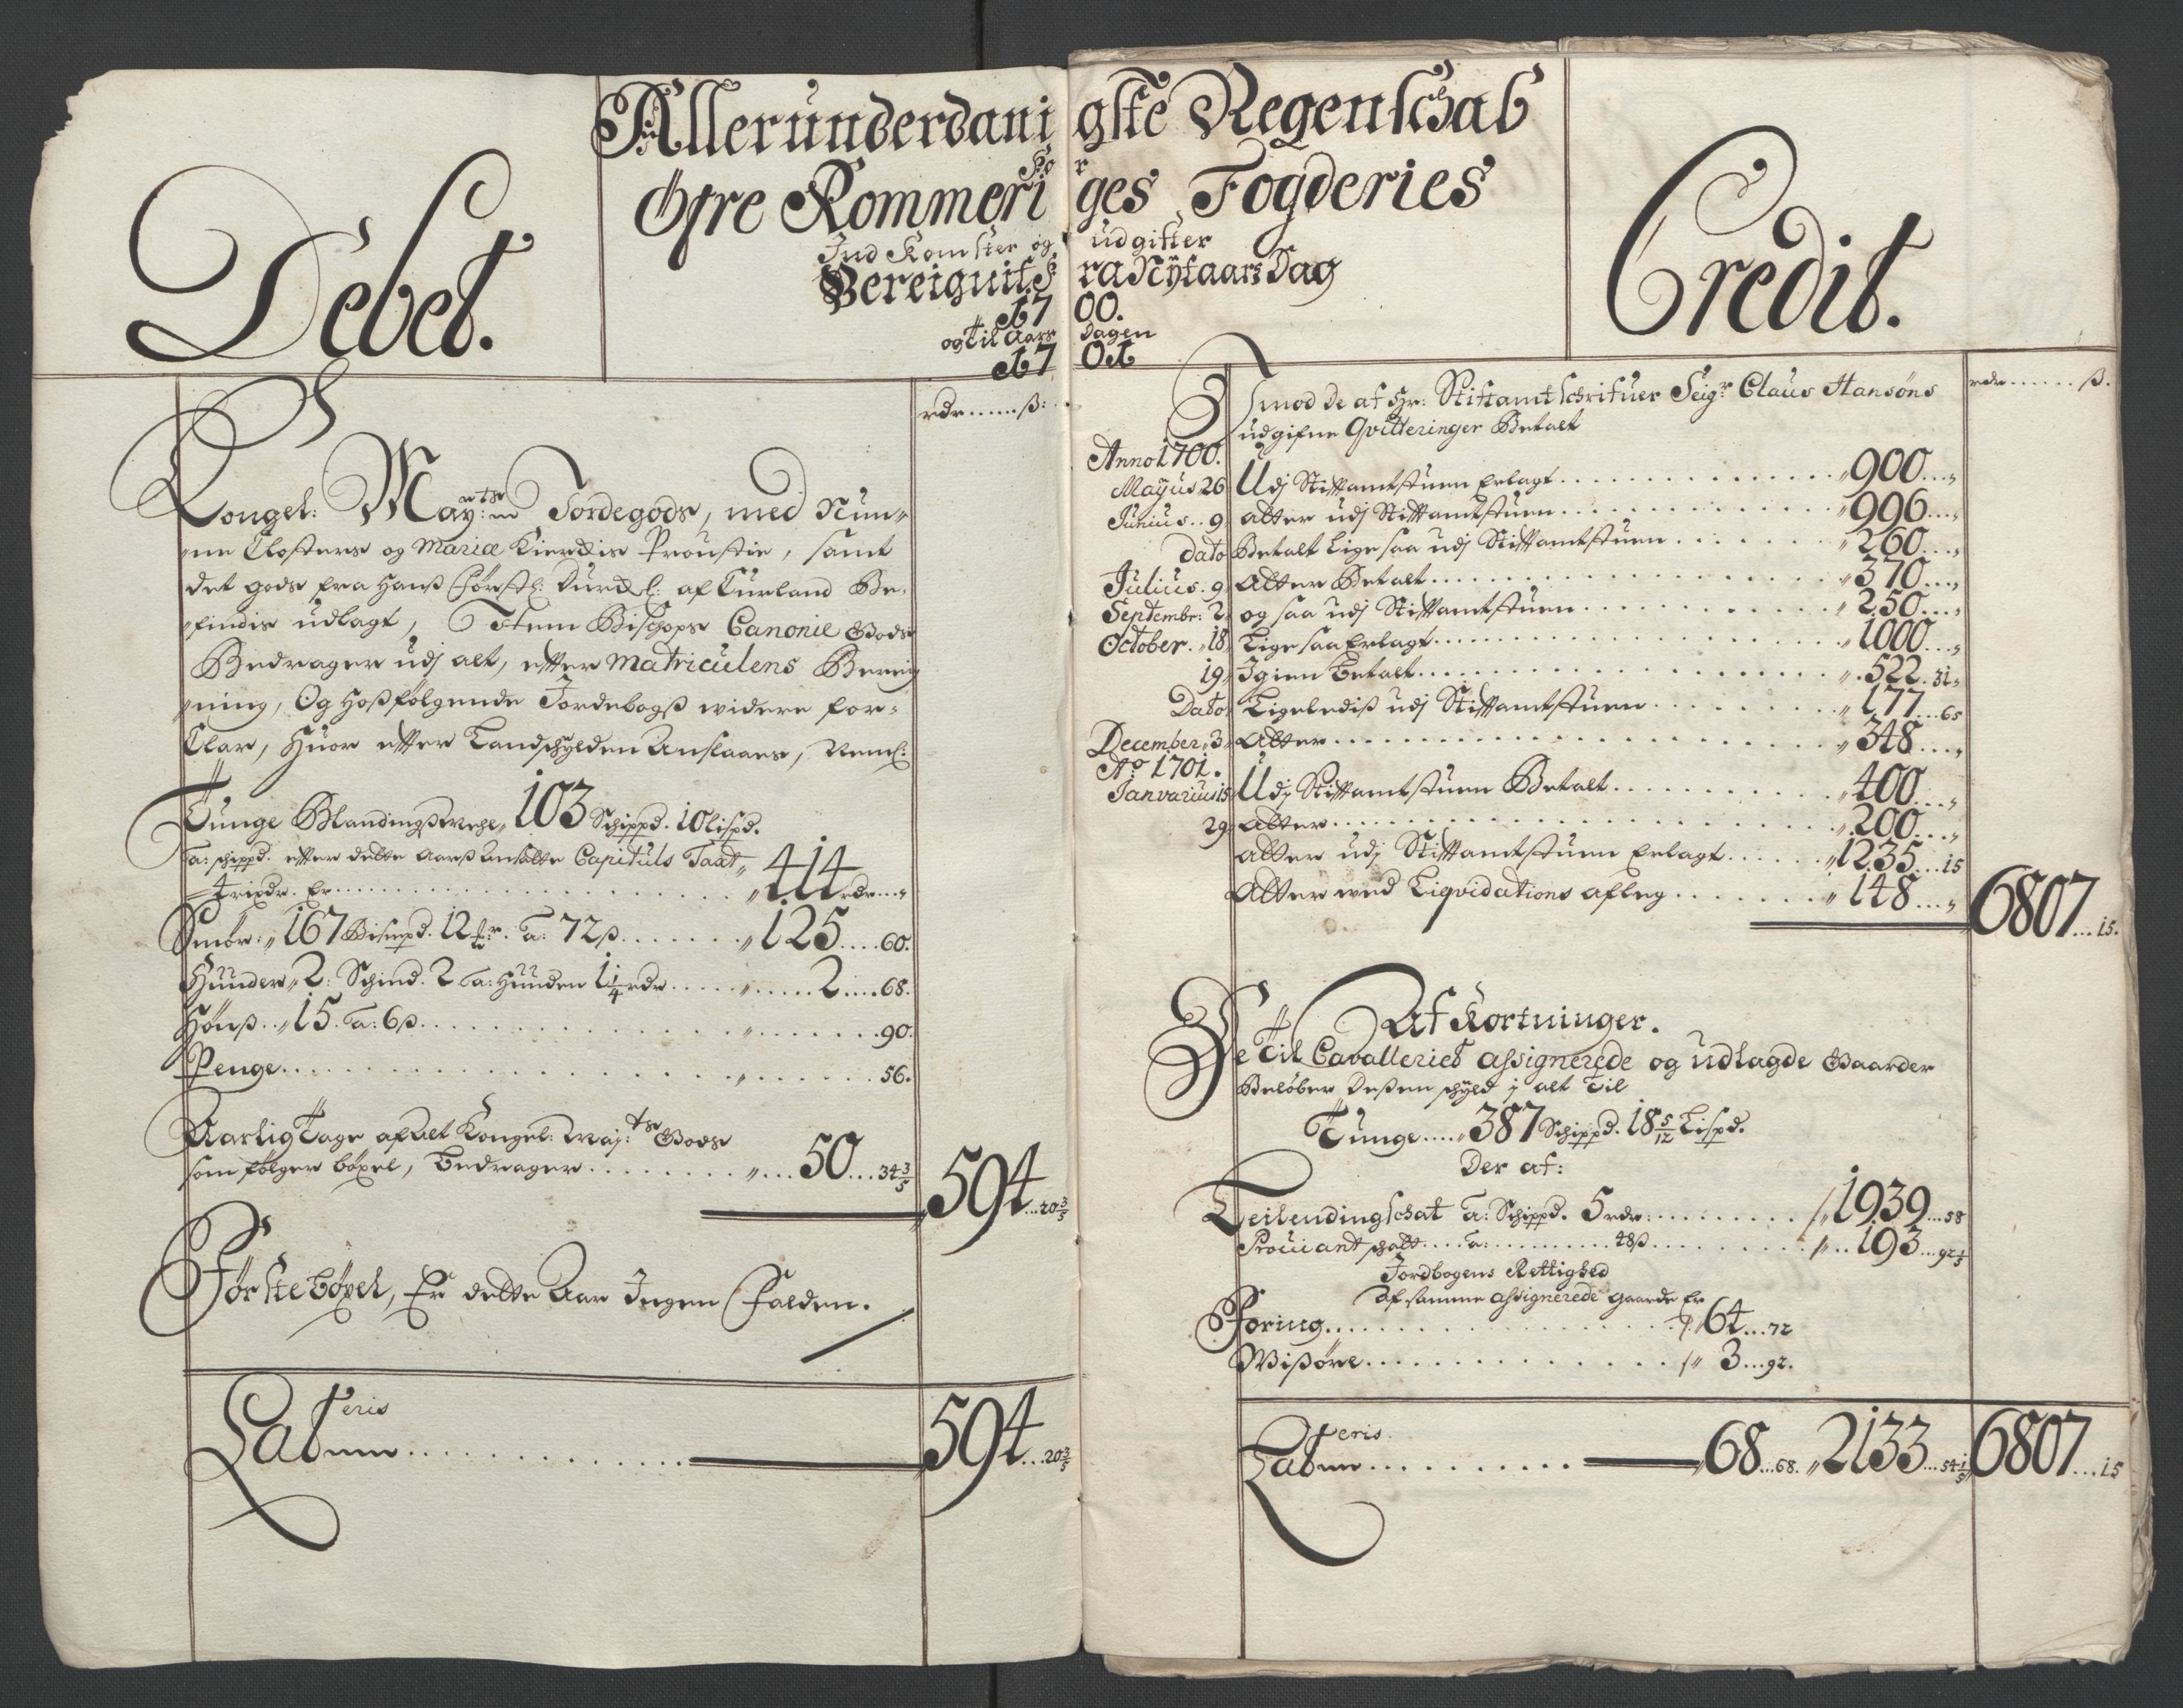 Allerunderdanigste Regenschab
For
Øfre Rommeriges Fogderies
Ind Komster og udgifter
Bereignit Fra Nÿtaars Dag
1700.
og Til Aars Dagen
1701
Debet.
rdr......ß:
Kongel: May:tts Jordegods, med Nun-
ne Closters og Mariæ Kierckis Proustie, samt
det gods fra Hans Førstl: Durchl: af Curland Be-
findis udlagt, Item Bischops Canonie Gods
Bedrager udj alt, efter Matriculens Bereig
ning, Og Hoßfølgende Jordebogs widere for-
Clar, Huor efter Landschylden Anslaaes, Neml:
Tunge Blandings 103 Schippd. 10 lispd.
a: schippd. efter dette Aars ansatte Capituls Taxt
4 rixdr. Er ..... 414 rdr...
Smør: 167 Bismpd. 12 mr. a: 72 ß ..... 125....60.
Huuder 2: Schind. 2 a: Huuden 1¼ rdr ..... 2....68.
Hønß.. 15. a: 6 ß ..... 90.
Penge ..... 56.
Aarlig Tage af alt Kongel: May:ts Gods
som følger bøxel, bedrager ..... 50...34 3/5
594...20 3/5
Første bøxel, Er dette Aar Ingen Falden.
Lateris
Summ ..... 594...20 3/5
Credit.
rdr......ß.
Imod De af Hr: Stiftamtschrifuer Seigr Claus Hansøns
udgifne Qvitteringer Betalt
Anno 1700.
Mayus 26 Udj Stiftamtstuen Erlagt ..... 900...
Junius.. 9 atter udj Stiftamtstuen ..... 996...
Dato Betalt Lige saa udj Stiftamtstuen ..... 260...
Julius. 9 Atter Betalt ..... 370...
Septembr: 2 og saa udj Stiftamtstuen ..... 250...
October. 18 Lige saa Erlagt ..... 1000...
19 Igien betalt ..... 522. 31
Dato Ligeledis udj Stiftamtstuen ..... 177...65
December 3 Atter ..... 348...
Ao 1701.
Janvarius 15 Udj Stiftamtstuen Betalt ..... 400...
29 Atter ..... 200...
Atter udj Stiftamtstuen Erlagt ..... 1235...15
Atter wed Liqvidations afleg ..... 148...
6807...15.
Af Kortninger.
De Til Cavalleriet Assignerede og udlagde Gaarder
Beløber Deßen schyld j alt Til
Tunge.... 387 Schippd. 18 5/12 Lispd.
Der af:
Leilendingschat a: Schippd. 5 rdr: ..... 1939...58
Proviant schatt.... a: ..... 48 ß ..... 193...92 1/5
Jordbogens Rettighed
Af samme Assignerede gaarde Er
Foring ..... 64...72
Wißøre ..... 3...92.
Lateris
Summ ..... 68...68. 2133...54 1/5 6807...15